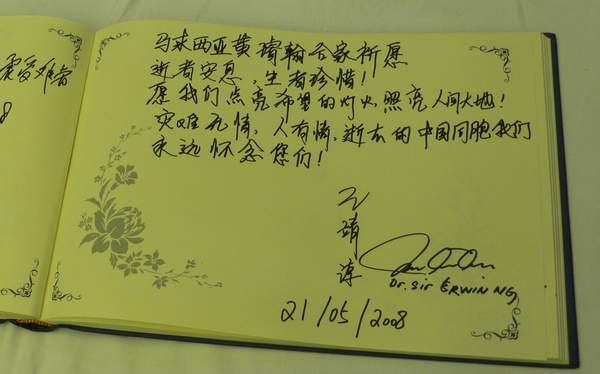 震受难者
8
马来西亚黄璿翰合家祈愿
逝者安息，生者珍惜！
愿我们点亮希望的灯火，照亮人间大地！
灾难无情，人有情，逝去的中国同胞我们
永远怀念您们！
靖
淳
Dr. Sir ERWIN NG
21/05/2008